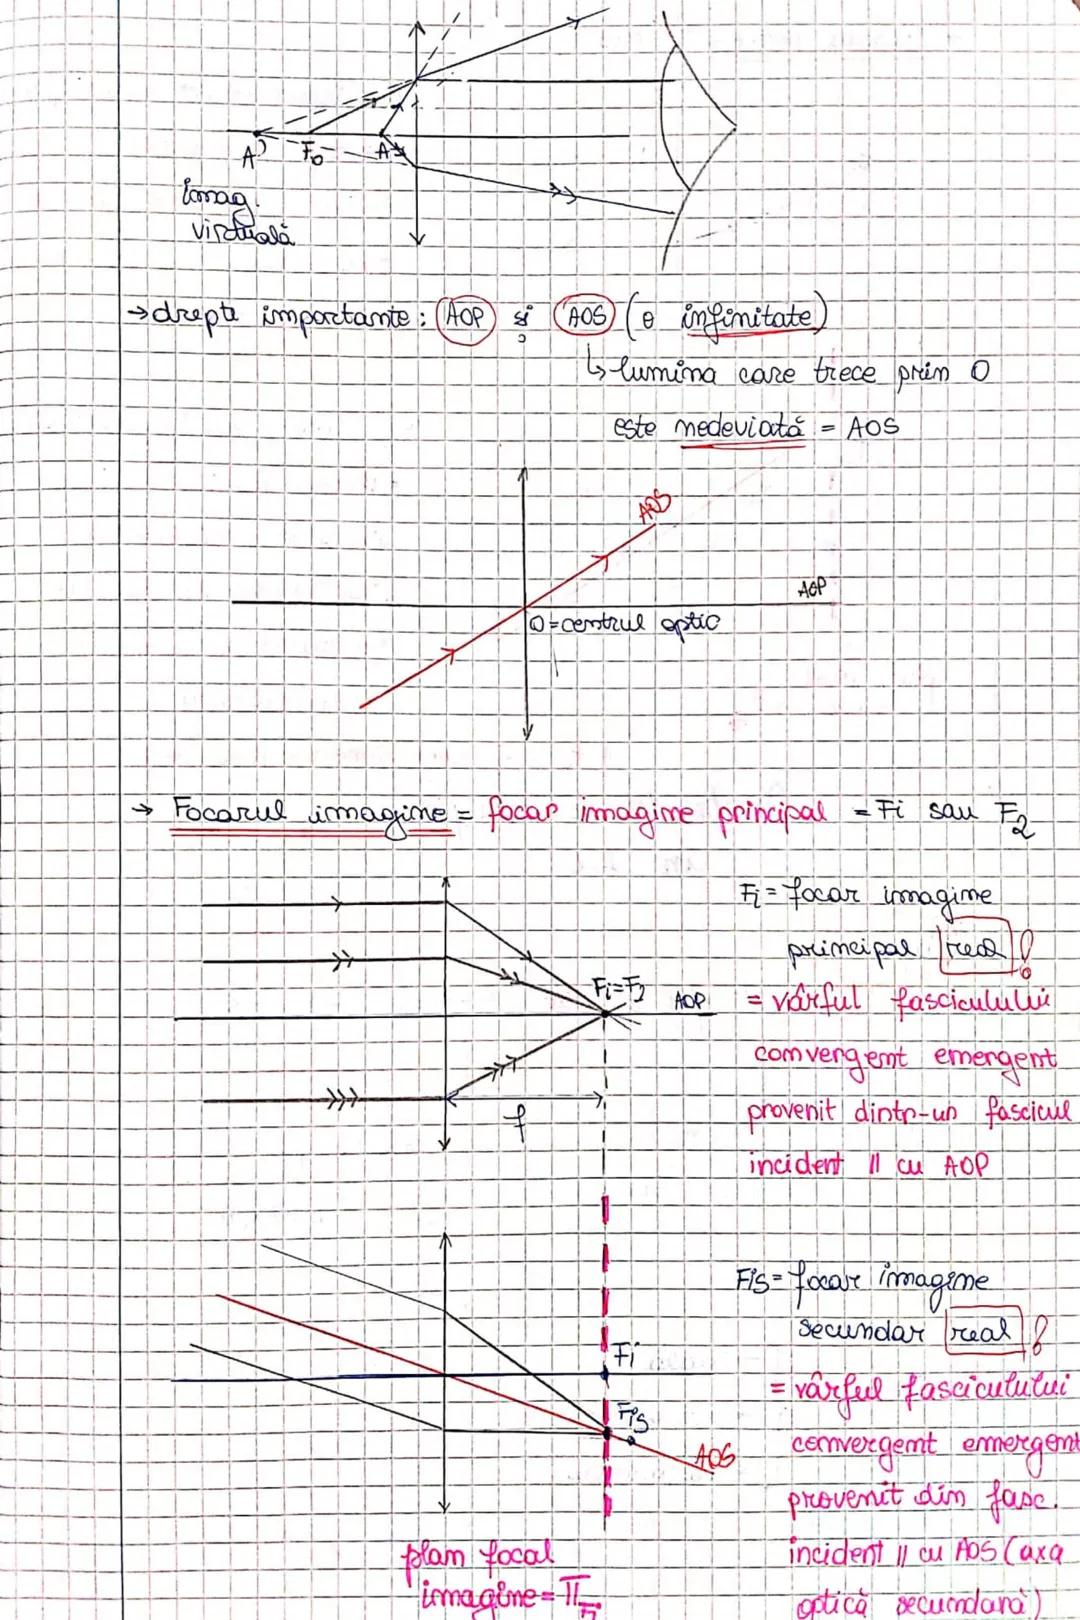 A' F₀ A
imag.
virtuală
→ drepte importante: AOP și AOS (o infinitate)
↳ lumina care trece prin O
este nedeviată = AOS
AOS
AOP
O=centrul optic
→ Focarul imagine = focar imagine principal = Fi sau F₂
Fi = focar imagine
principal real!
Fi=F₂ AOP
= vârful fasciculului
convergent emergent
f
provenit dintr-un fascicul
incident || cu AOP
Fis = focar imagine
secundar real!
Fi
= vârful fasciculului
Fis
convergent emergent
AOS
provenit din fasc.
incident || cu AOS (axa
optică secundară)
plan focal
imagine = π